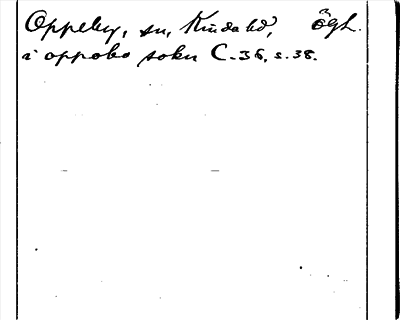 Oppeby, sn, Kinda hd, Ögl.
i oppobo sokn C. 36, s. 38.